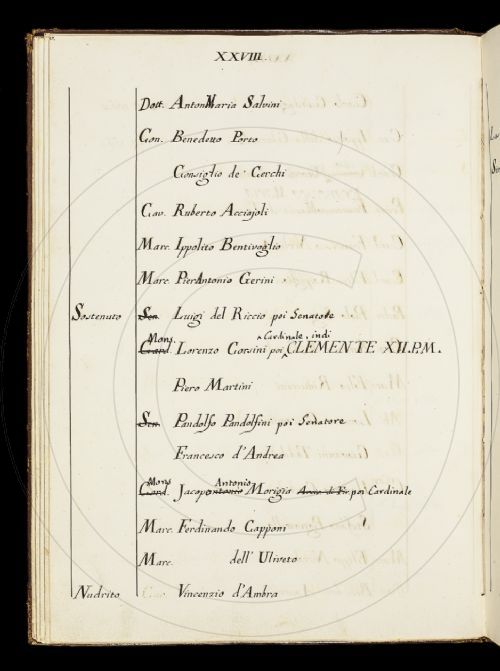 XXVIII.
Dott. AntonMaria Salvini
Con. Benedetto Porto
Consiglio de' Cerchi
Cav. Ruberto Acciajoli
Marc. Ippolito Bentivoglio
Marc. PierAntonio Gerini
Sostenuto Sen. Luigi del Riccio poi Senatore
Mons. Card. Lorenzo Corsini poi Cardinale, indi CLEMENTE XII. P.M.
Piero Martini
Sen. Pandolfo Pandolfini poi Senatore
Francesco d'Andrea
Mons Card. Jacopo Antonio antonio Morigia Arciv. di Fir. poi Cardinale
Marc. Ferdinando Capponi
Marc. dell' Uliveto
Nudrito Cav. Vincenzio d'Ambra